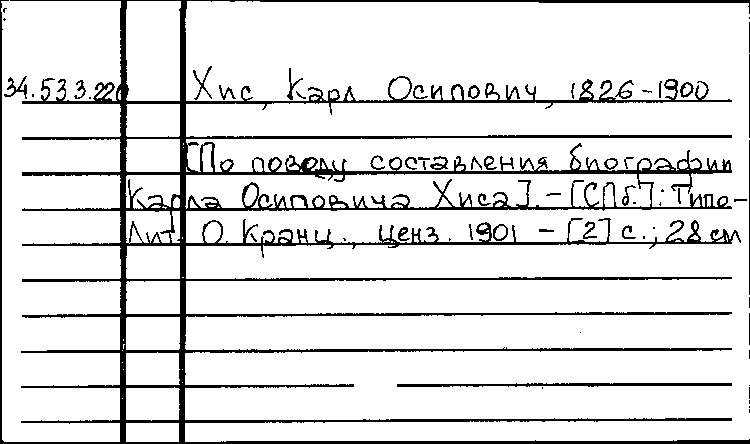 34.533.220 Хис, Карл Осипович, 1826-1900
[По поводу составления биографии
Карла Осиповича Хиса]. - [СПб.]: Типо-
Лит. О. Кранц., ценз. 1901 - [2] с.; 28 см